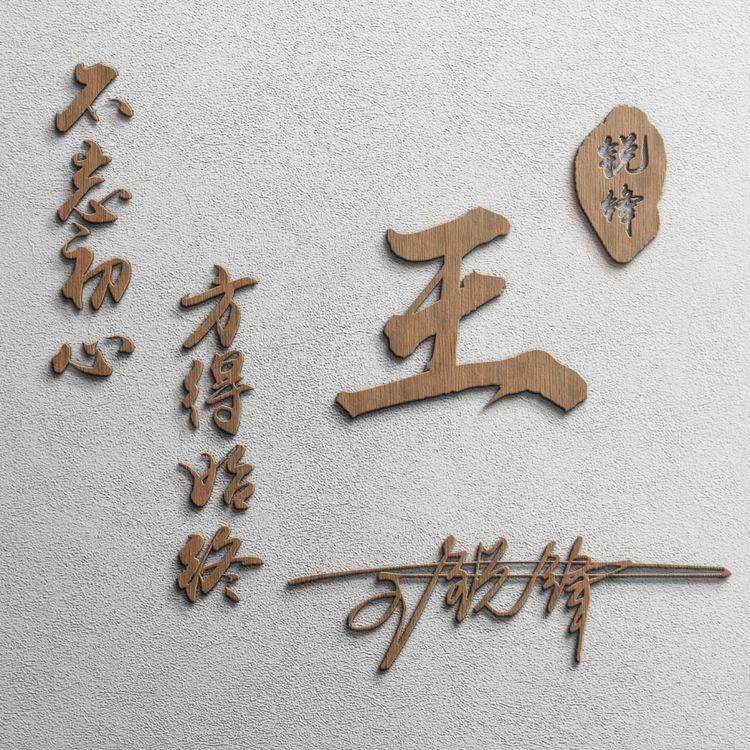 不忘初心
方得始终
王
锐锋
王锐锋